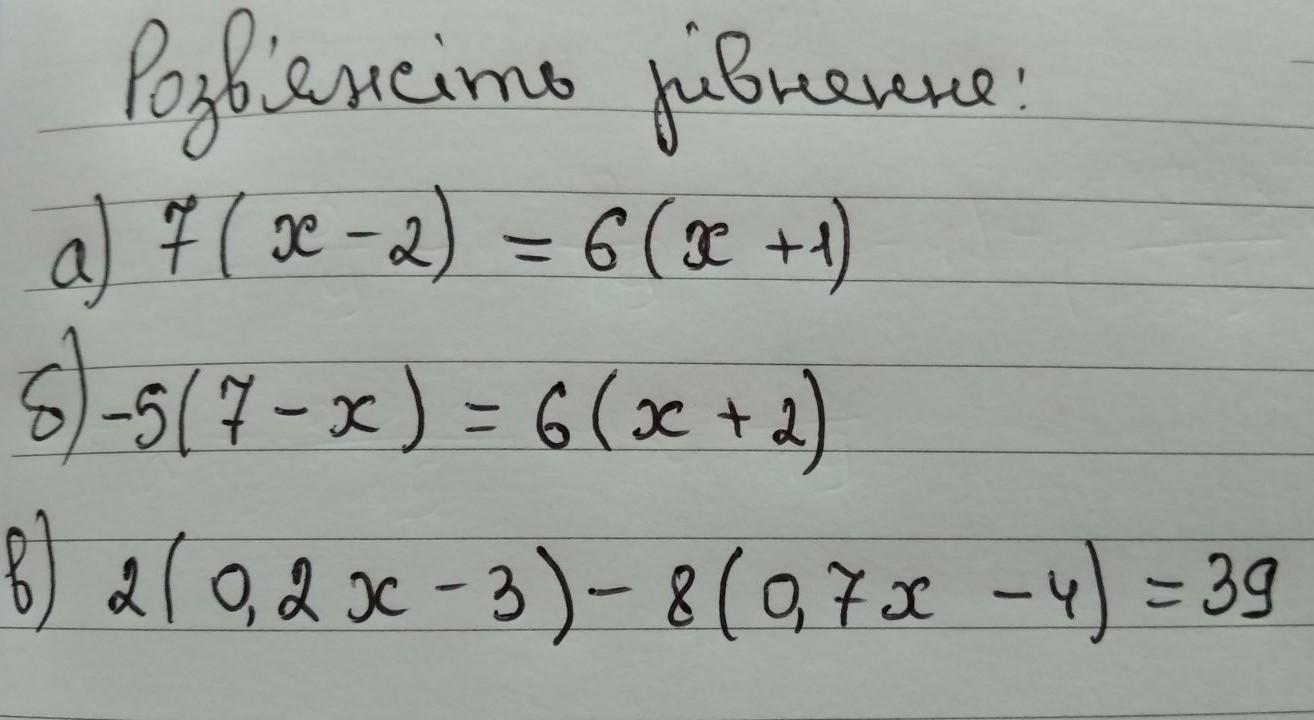 Розв'яжіть рівняння:
а) 7(x - 2) = 6(x + 1)
б) -5(7 - x) = 6(x + 2)
в) 2(0,2x - 3) - 8(0,7x - 4) = 39